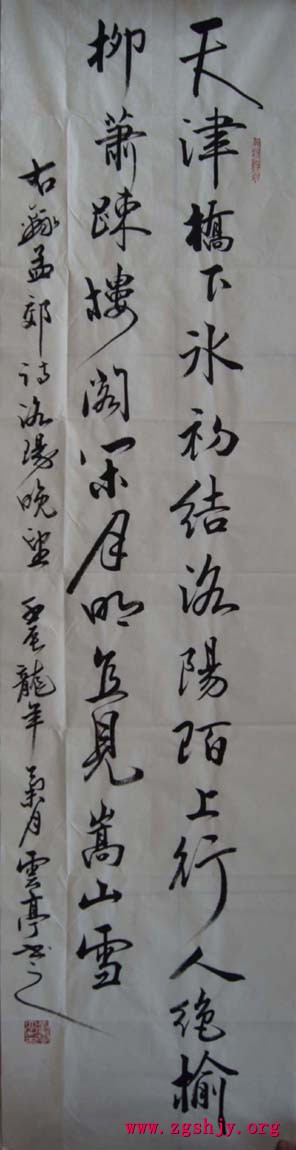 天津橋下冰初結洛陽陌上行人绝榆
柳蕭疎樓閣閑月明直見嵩山雪
右錄孟郊诗洛陽晚望 壬辰龍年月雲亭书之
www.zgshjy.org